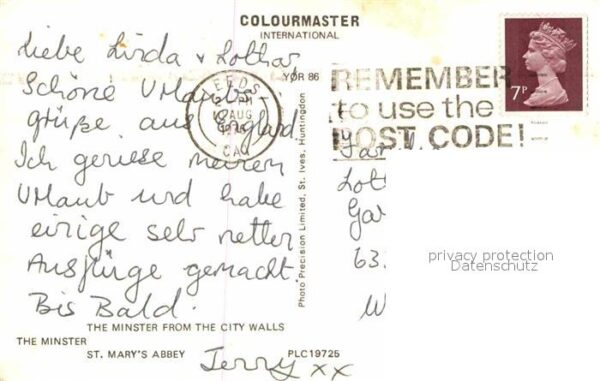 COLOURMASTER
INTERNATIONAL
Liebe Linda + Lothar
Schöne Urlaubs
grüße aus England.
Ich geniese meinen
Urlaub und habe
einige sehr netter
Ausflüge gemacht.
Bis Bald.
Jerry xx
YOR 86
LEEDS
PM
AUG
REMEMBER
to use the
POST CODE!
7P
Photo Precision Limited, St. Ives, Huntingdon
Lot
Ga
63
W
privacy protection
Datenschutz
THE MINSTER FROM THE CITY WALLS
THE MINSTER
ST. MARY'S ABBEY
PLC19725